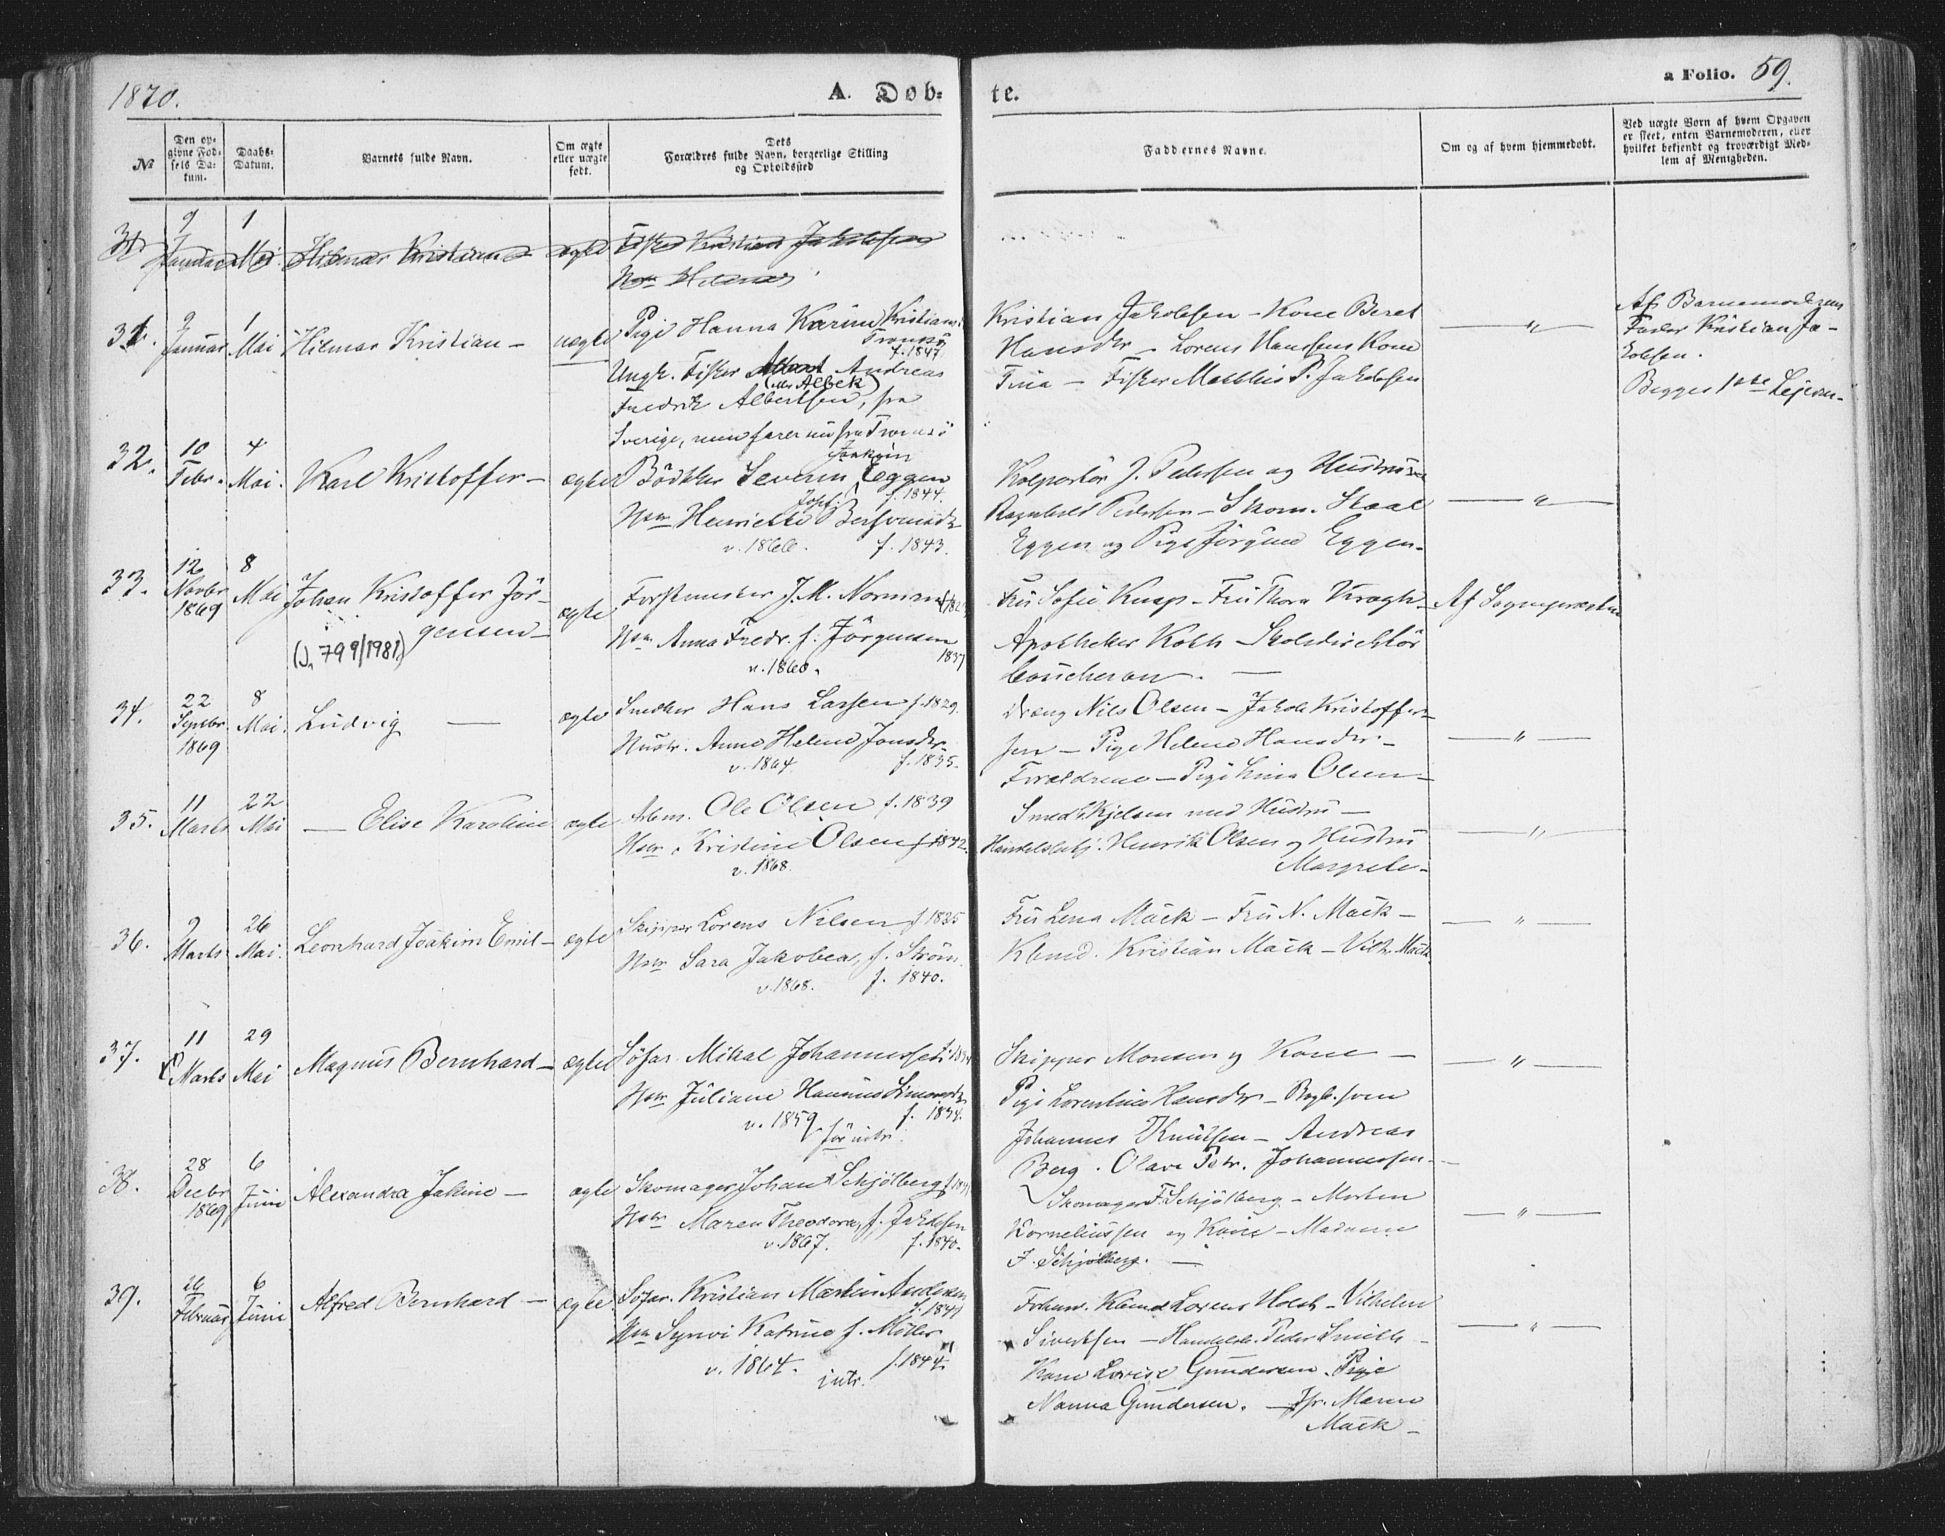 1870.
A. Døb-
te.
a Folio. 59.
№
Den op-
givne Fød-
sels Da-
tum.
Daabs-
Datum.
Barnets fulde Navn.
Om ægte
eller uægte
født.
Dets
Forældres fulde Navn, borgerlige Stilling
og Opholdssted
Faddernes Navne.
Om og af hvem hjemmedøbt.
Ved uægte Børn af hvem Opgaven
er skeet, enten Barnemoderen, eller
hvilket bekjendt og troværdigt Med-
lem af Menigheden.
9 Januar 1 Mai Hilmar Kristian ægte Fisker Kristian Jakobsen
Hstr Helenes
31. 9 Januar 1 Mai Hilmar Kristian – uægte Pige Hanna Karine Kristians
Tromsø
f. 1847.
Ungk. Fisker Andreas
(Albek)
Fredrik Albertsen, fra
Sverige, men farer nu fra Tromsø
Kristian Jakobsen – Kone Beret
Hansdtr – Lorens Hanssens Kone
Tina – Fisker Matthis P. Jakobsen
– " –
Af Barnemoderens
Fader Kristian Ja-
kobsen.
Begges 1ste Lejerm.
32. 10 Febr. 4 Mai. Karl Kristoffer – ægte Bødker Severin Joakim Eggen
f. 1844.
Hstr Henriette Josef.
v. 1866. f. 1843.
Kolportør J. Pedersen og Hustru
Ragnhild Pedersen – Skom. Staal
Eggen og Pige Jørgine Eggen –
– " –
33. 12 Novbr 1869 8 Mai Johan Kristoffer Jør-
gensen –
(J. 799/1981)
ægte Forstmester J. M. Norman
Hstr Anna Fredr. f. Jørgensen
v. 1860. 1837
Fru Sofie Knap – Fru Thora Kragh –
Apotheker Koth – Skoledirektør
Coucheron. –
Af Sognepræsten
34. 22 Septbr. 1869 8 Mai. Ludvig – ægte Snedker Hans Larsen f. 1829.
Hustr. Anne Helene Jonsdtr.
v. 1864. f. 1835.
Dreng Nils Olsen – Jakob Kristoffer-
sen – Pige Helene Hansdtr. –
Forældrene – Pige Lina Olsen –
– " –
35. 11 Marts 22 Mai – Elise Karoline ægte Arbm. Ole Olsen f. 1839
Hstr. Kristine Olsen f. 1842.
v. 1868.
Smed Kjelsen med Hustru –
Handelsbetj. Henrik Olsen og Hustru
Margrete –
– " –
36. 9 Marts 26 Mai. Leonhard Joakim Emil – ægte Skipper Lorens Nilsen f 1825
Hstr Sara Jakobea, f. Strøm
v. 1868. f. 1840.
Fru Lena Mack – Fru N. Mack –
Kbmd. Kristian Mack – Vilh. Mack
– " –
37. 11 Marts 29 Mai Magnus Bernhard – ægte Søfar. Mikal Johannessen
Hstr Juliane Hansine Simonsdtr
v. 1859. f. 1834.
før intr.
Skipper Monsen og Kone –
Pige Lorentine Hansdtr – Røgt.søn
Johannes Knutsen – Andreas
Berg. Olava Petr. Johannessen –
– " –
38. 28 Decbr 1869 6 Juni Alexandra Jakine – ægte Skomager Johan Schjølberg
Hstr Maren Theodora, f. Jakobsen
v. 1867. f. 1840.
Skomager F. Schjølberg – Morten
Korneliussen og Kone – Madame
F. Schjølberg. –
– " –
39. 26 Februar 6 Juni Alfred Bernhard – ægte Søfar. Kristian Martin Andersen
f. 1841
Hstr Synvi Katrine f. Møller
v. 1864. f. 1844.
intr.
Lorens Holst – Vilhelm
Sivertsen – Handelsb. Peder Smith –
Kone Lovise Gundersen. Pige
Nanna Gundersen. – Jfr. Maren
Mack –
– " –